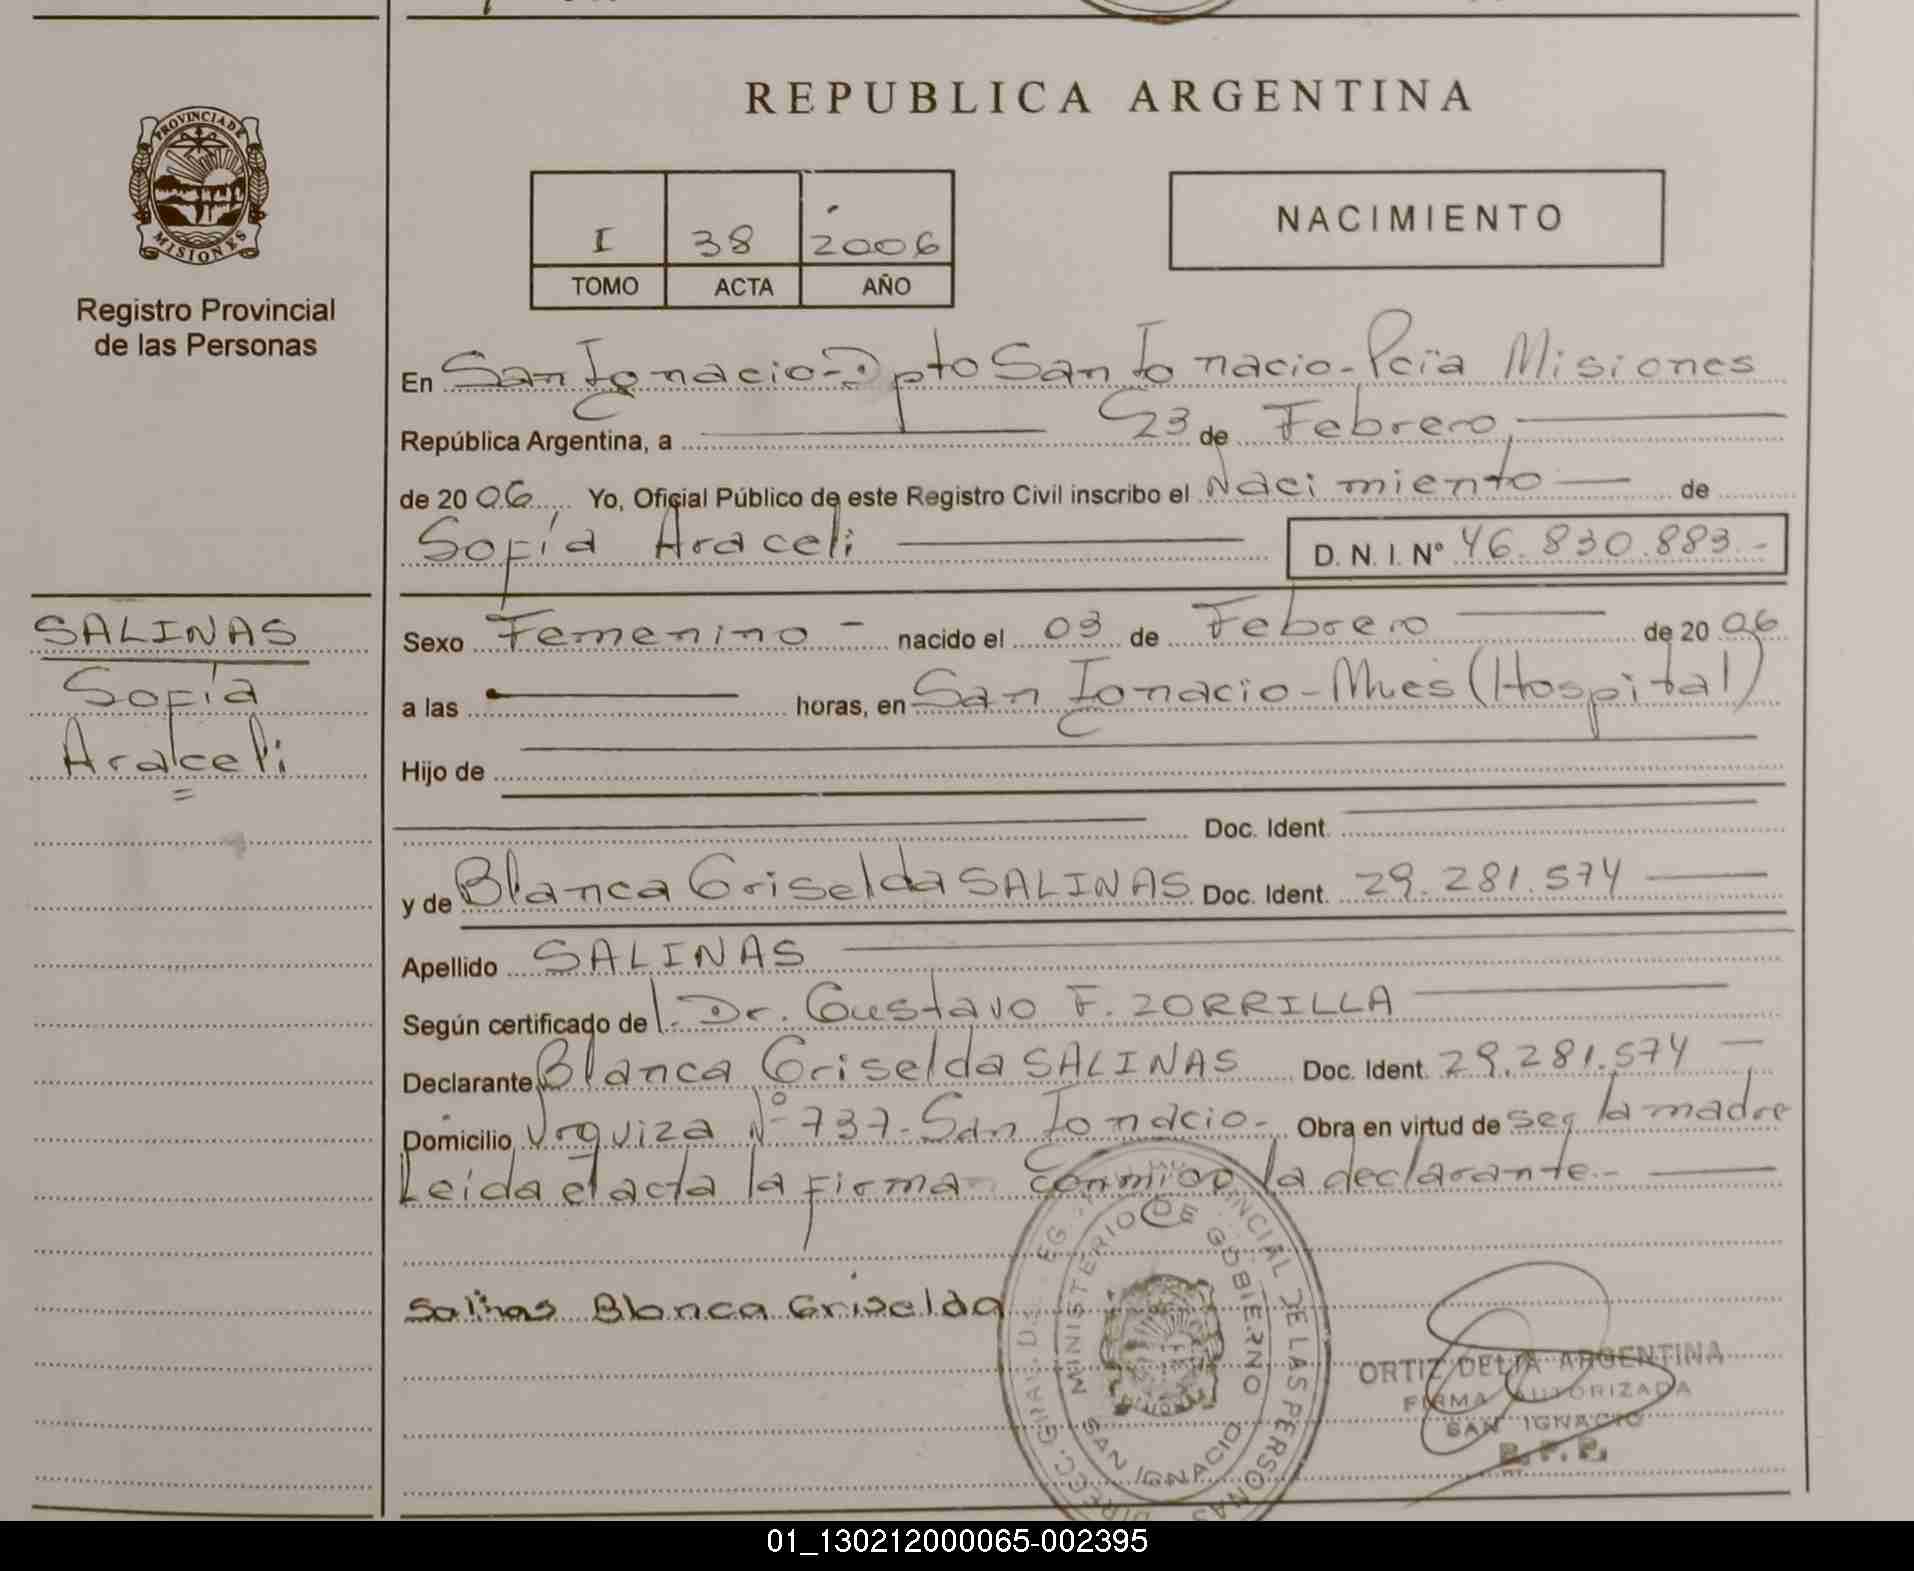 PROVINCIA DE
MISIONES
Registro Provincial
de las Personas
SALINAS
Sofía
Araceli
REPUBLICA ARGENTINA
I 38 2006
TOMO ACTA AÑO
NACIMIENTO
En San Ignacio-Dpto San Ignacio-Pcia Misiones
República Argentina, a 23 de Febrero,
de 2006 Yo, Oficial Público de este Registro Civil inscribo el Nacimiento de
Sofía Araceli D. N. I. N° 46.830.883.-
Sexo Femenino - nacido el 03 de Febrero de 2006
a las horas, en San Ignacio-Mnes (Hospital)
Hijo de
Doc. Ident.
y de Blanca Griselda SALINAS Doc. Ident. 29.281.574
Apellido SALINAS
Según certificado del. Dr. Gustavo F. ZORRILLA
Declarante Blanca Griselda SALINAS Doc. Ident. 29.281.574
Domicilio Urquiza N° 737-San Ignacio- Obra en virtud de ser la madre
Leída el acta la firma conmigo la declarante.-
Salinas Blanca Griselda
MINISTERIO DE GOBIERNO
SAN IGNACIO
DE LAS PERSONAS
ORTIZ DELIA ARGENTINA
FIRMA AUTORIZADA
SAN IGNACIO
01_130212000065-002395